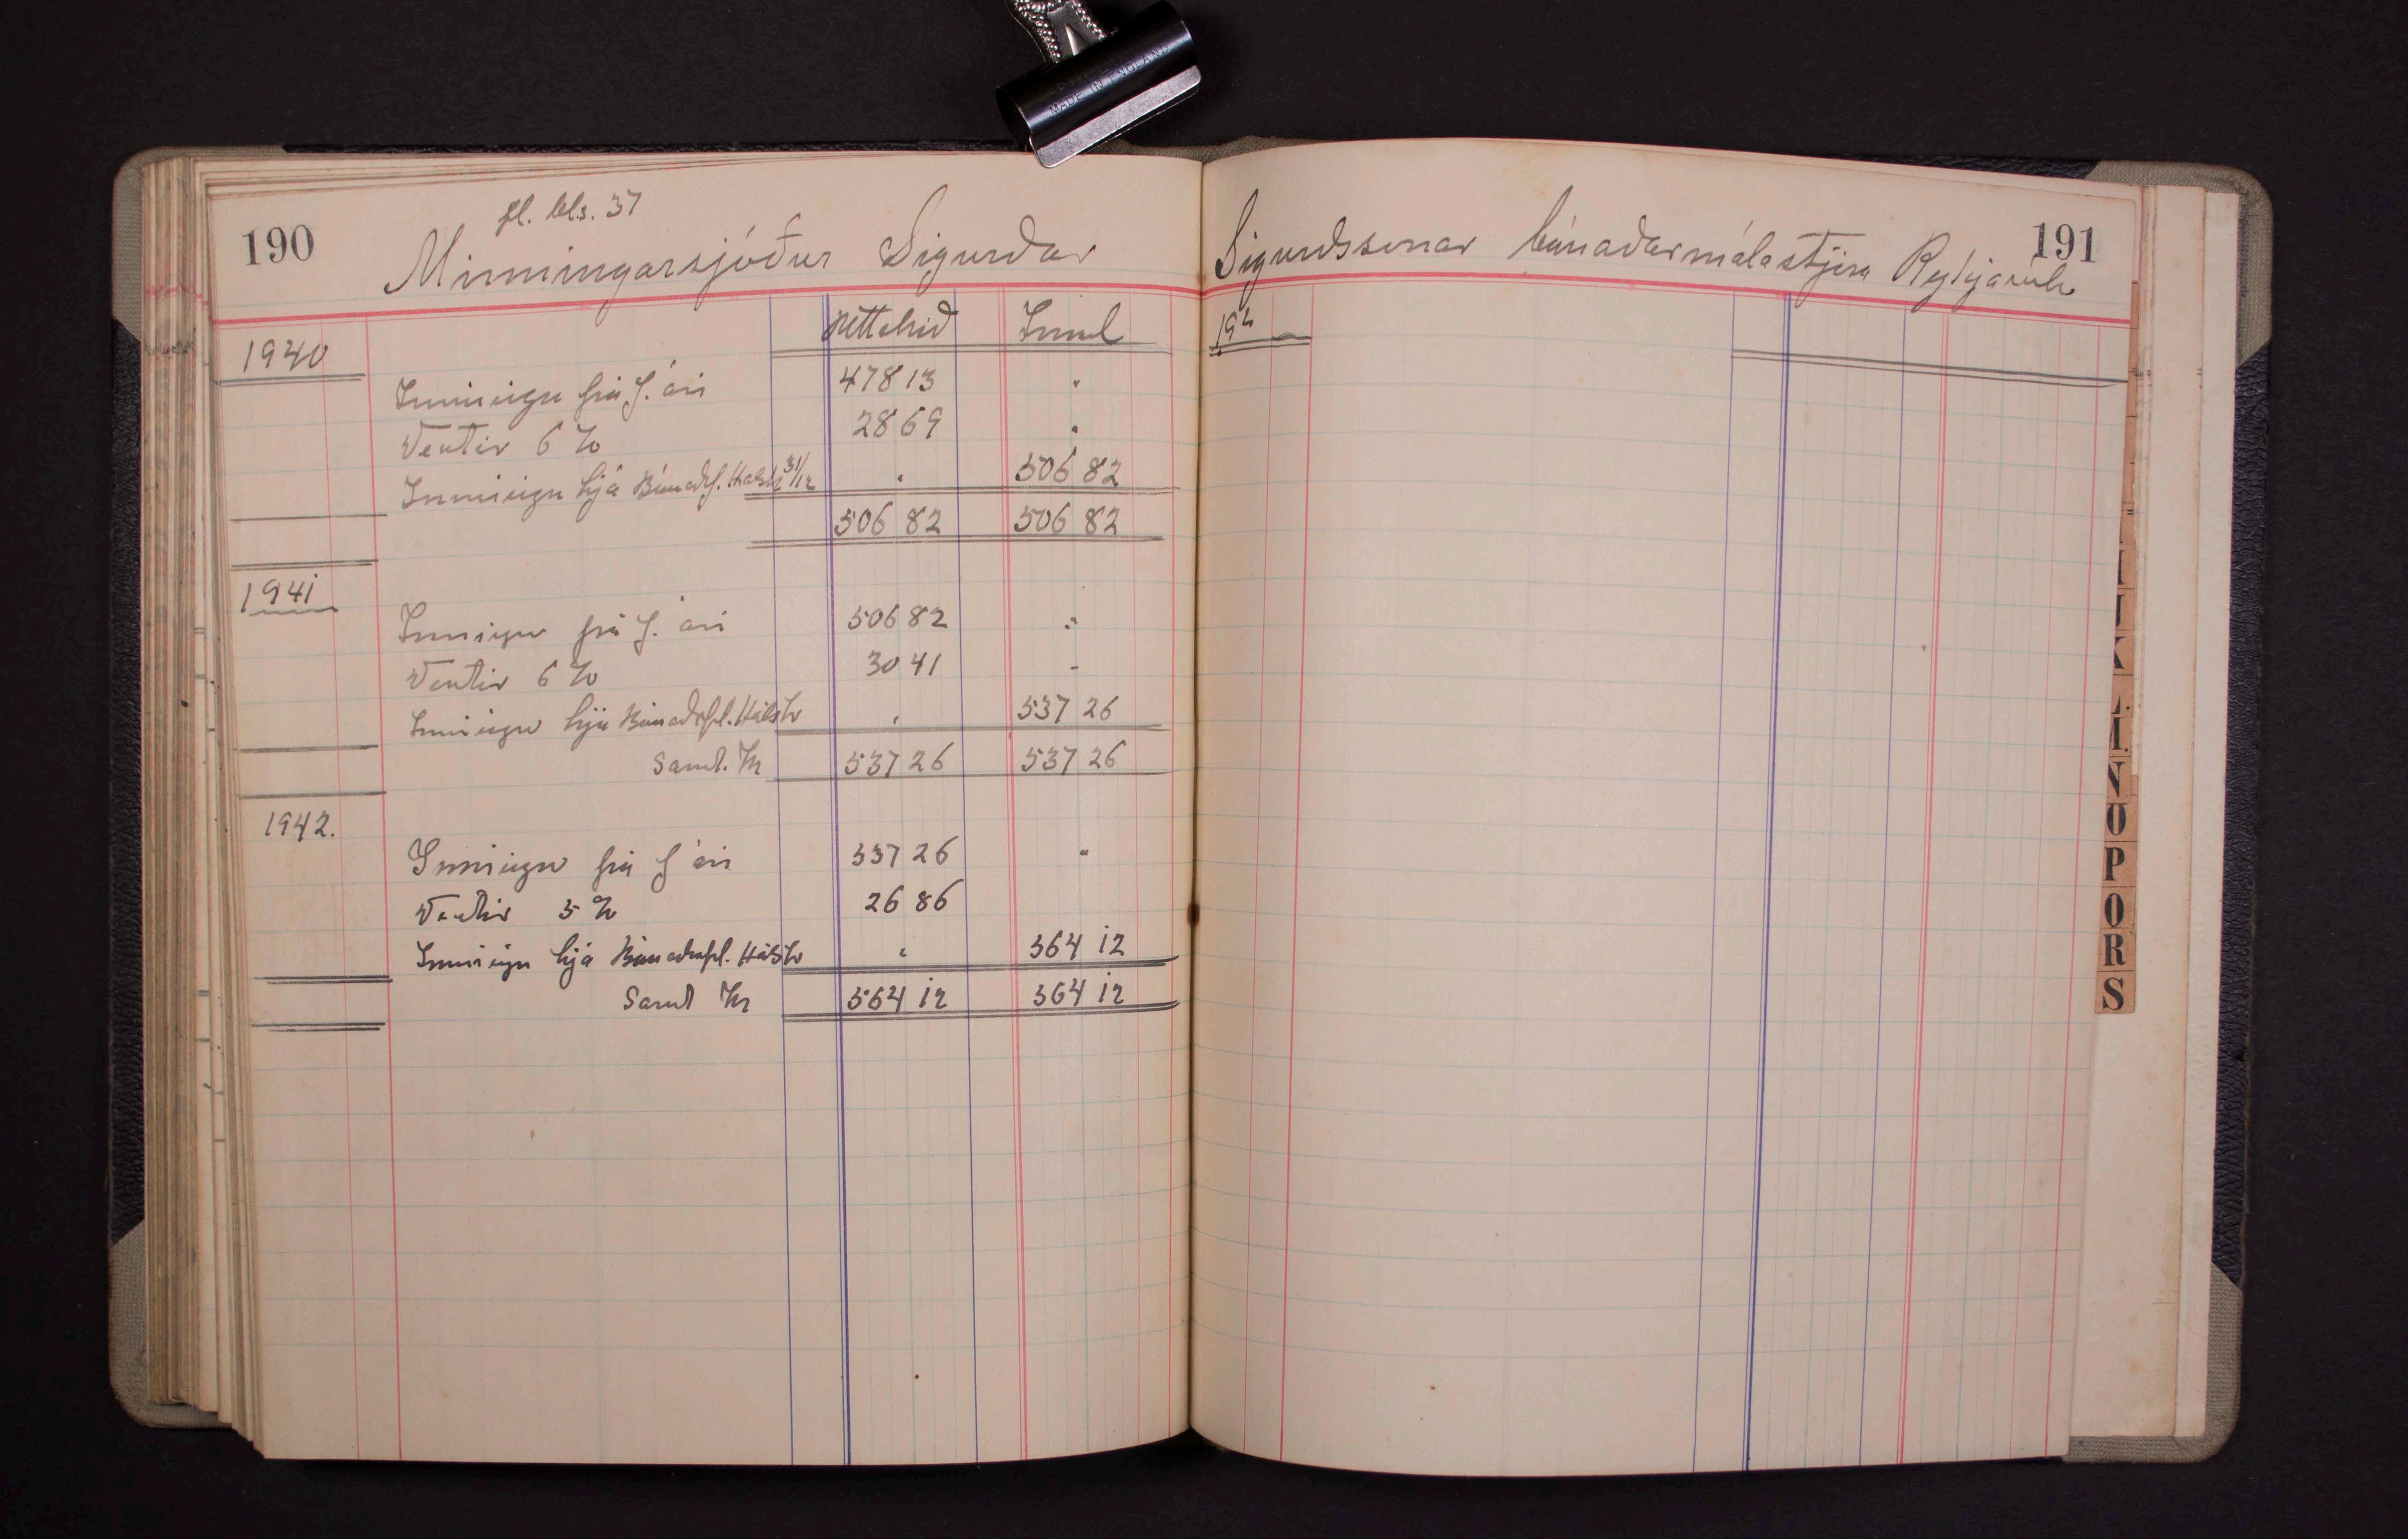 MADE IN ENGLAND
fl. bls. 37
190
Minningarsjóður Sigurðar
Sigurðssonar búnaðarmálastjóra Reykjavík
191
1940
Innl
194
Inneign frá f. ári 478 13 "
Vextir 6 % 28 69 "
Inneign hjá Búnaðf. Halshr 31/12 " 506 82
506 82 506 82
1941
Inneign frá f. ári 506 82 "
Vextir 6 % 30 41 -
Inneign hjá Búnaðarfl. Hálshr " 537 26
Samt. Kr 537 26 537 26
1942.
Inneign frá f ári 537 26 "
Vextir 5 % 26 86
Inneign hjá Búnaðarfl. Hálshr " 564 12
Samt Kr 564 12 564 12
N
O
P
Q
R
S